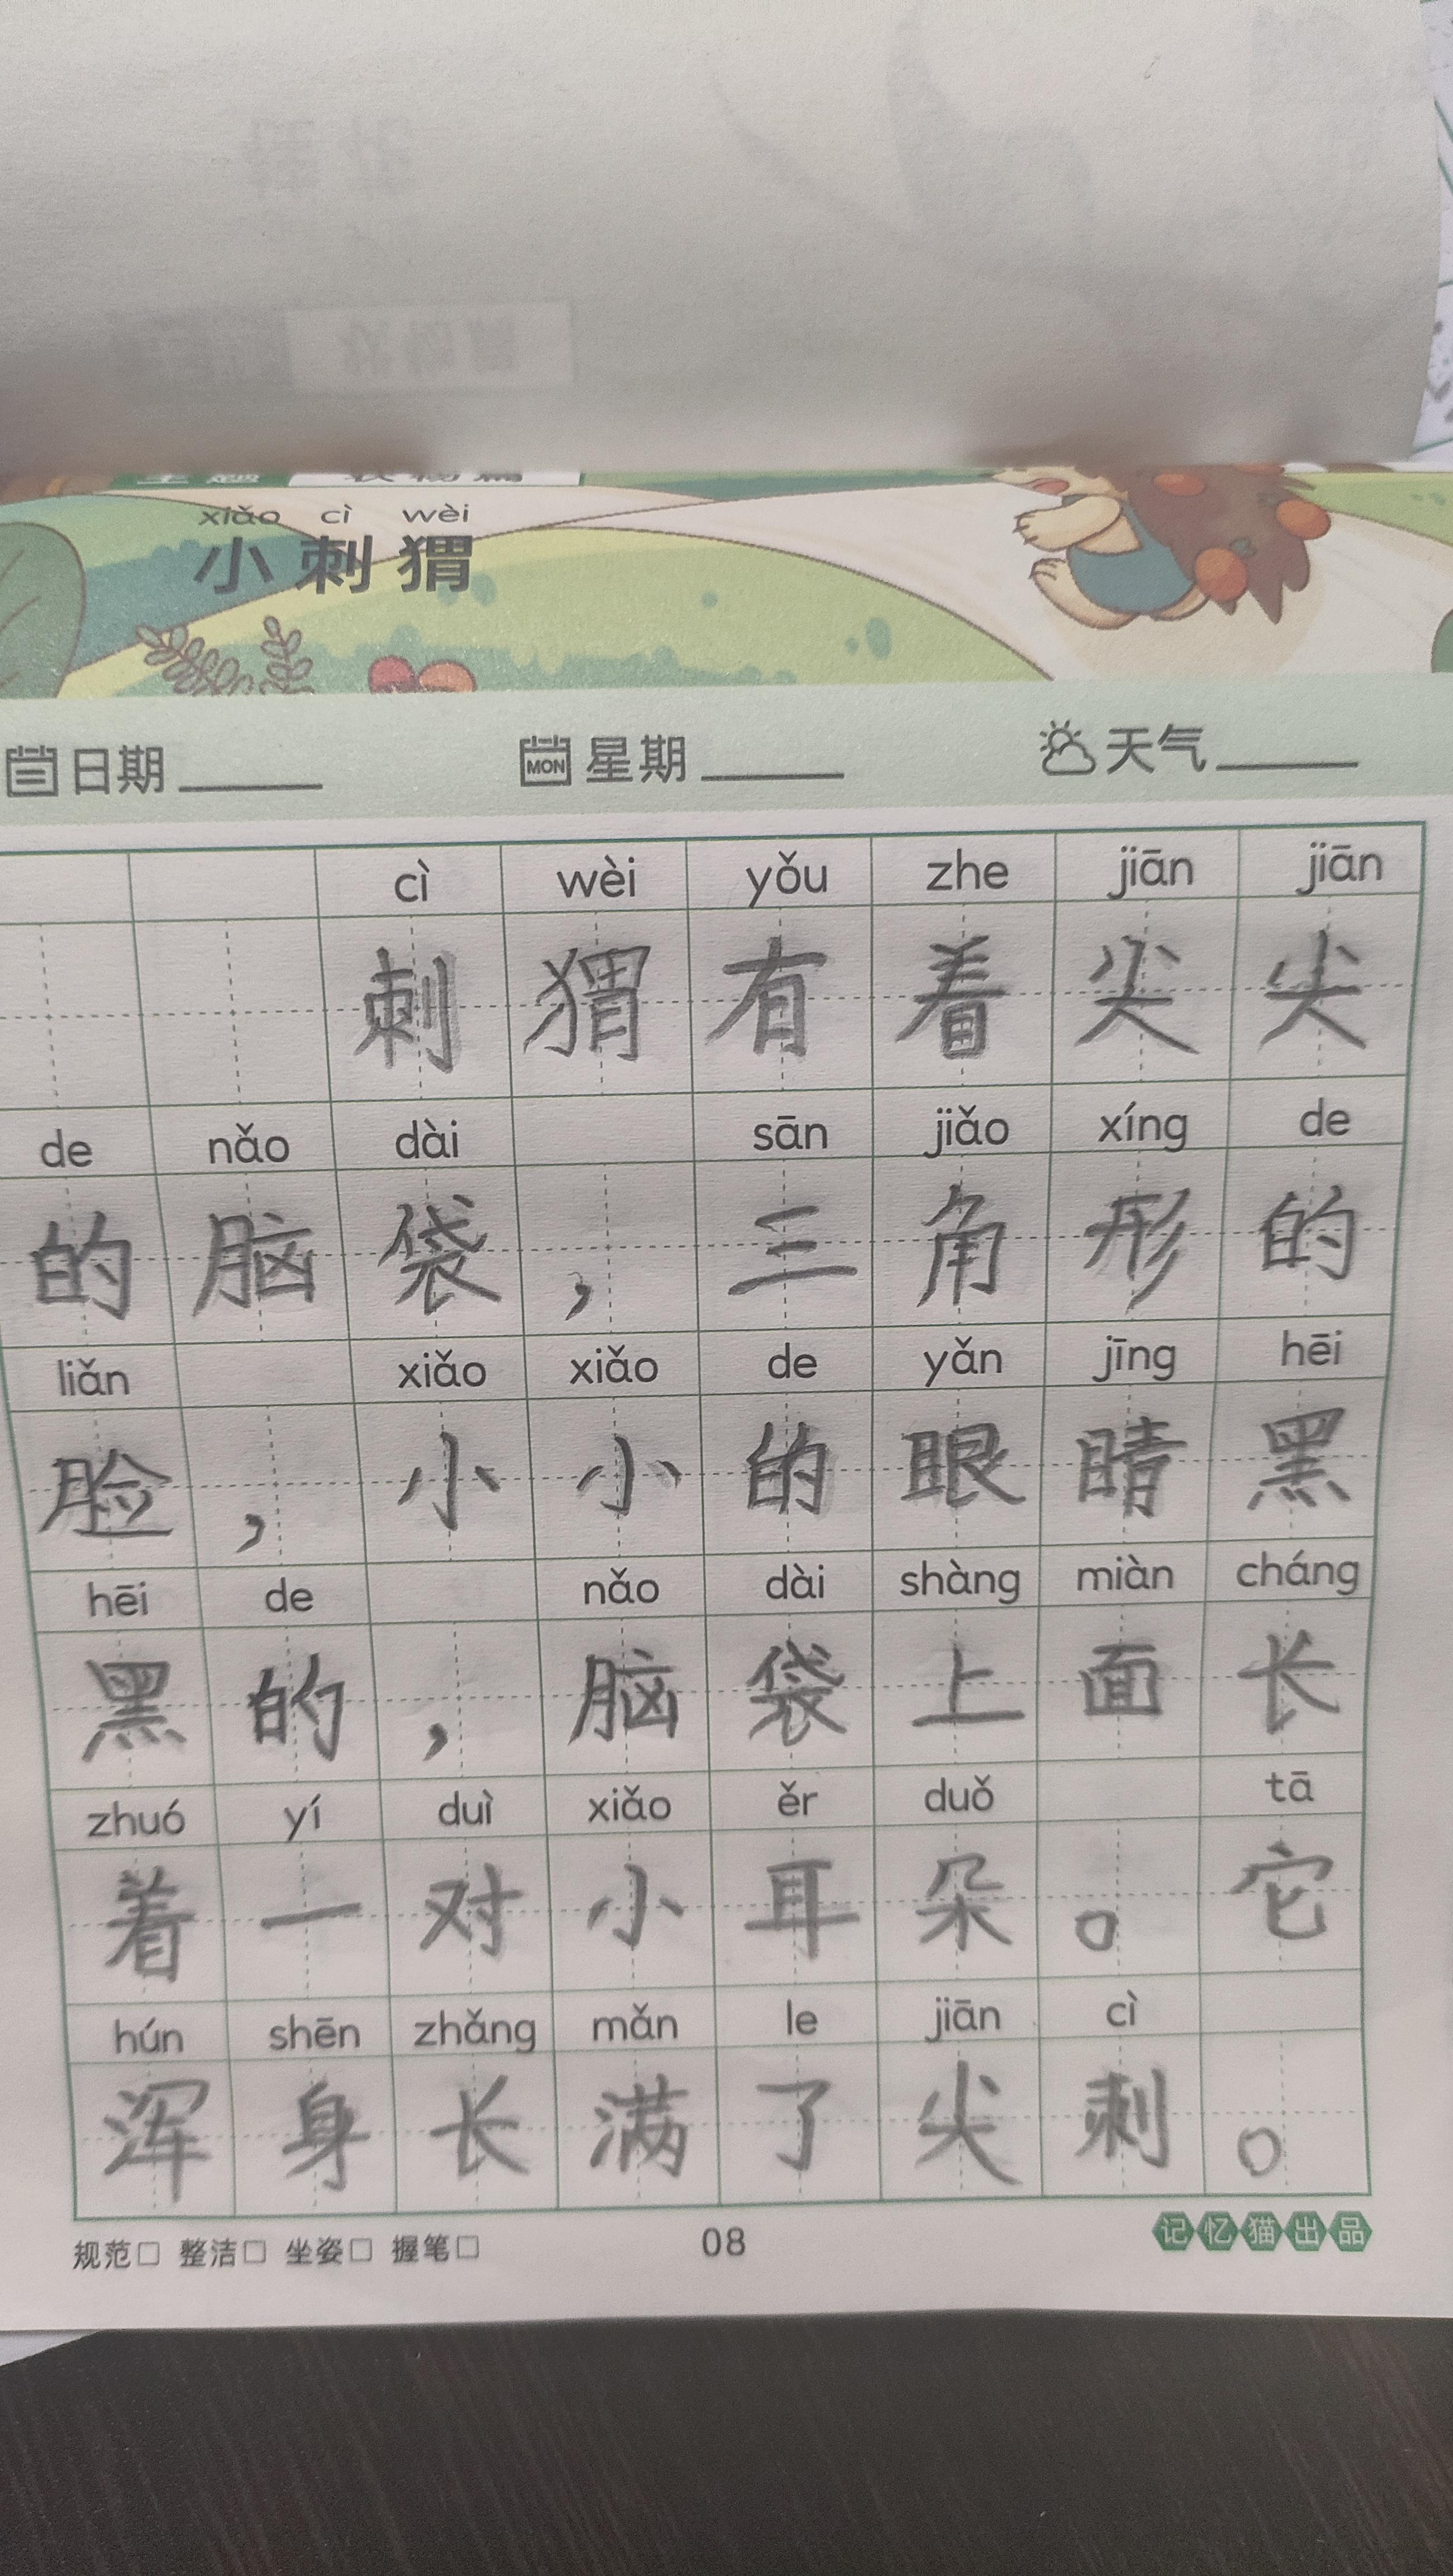 xiǎo cì wèi
小刺猬
日期
MON 星期
天气
cì wèi yǒu zhe jiān jiān
刺猬有着尖尖
de nǎo dài sān jiǎo xíng de
的脑袋，三角形的
liǎn xiǎo xiǎo de yǎn jīng hēi
脸，小小的眼睛黑
hēi de nǎo dài shàng miàn cháng
黑的，脑袋上面长
zhuó yí duì xiǎo ěr duǒ tā
着一对小耳朵。它
hún shēn zhǎng mǎn le jiān cì
浑身长满了尖刺。
规范□ 整洁□ 坐姿□ 握笔□
08
记忆猫出品